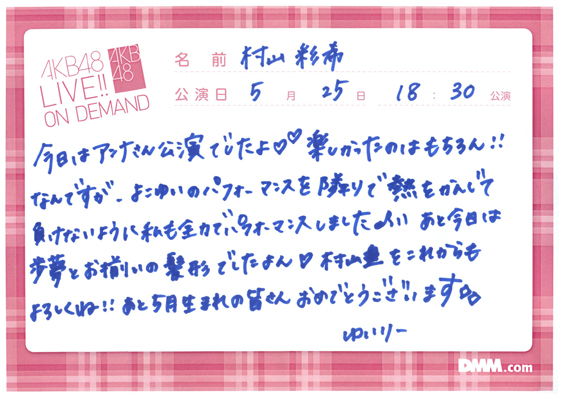 AKB48
LIVE!!
ON DEMAND
AKB
48
名 前 村山 彩希
公演日 5 月 25 日 18 : 30 公演
今日はアンナさん公演でしたよ♡♡ 楽しかったのはもちろん!!
なんですが、よこゆいのパフォーマンスを隣りで熱をかんじて
負けないように私も全力でパフォーマンスしました あと今日は
歩夢とお揃いの髪形でしたよん♡ 村山 をこれからも
よろしくね!! あと5月生まれの皆さん おめでとうございます
ゆいりー
DMM.com